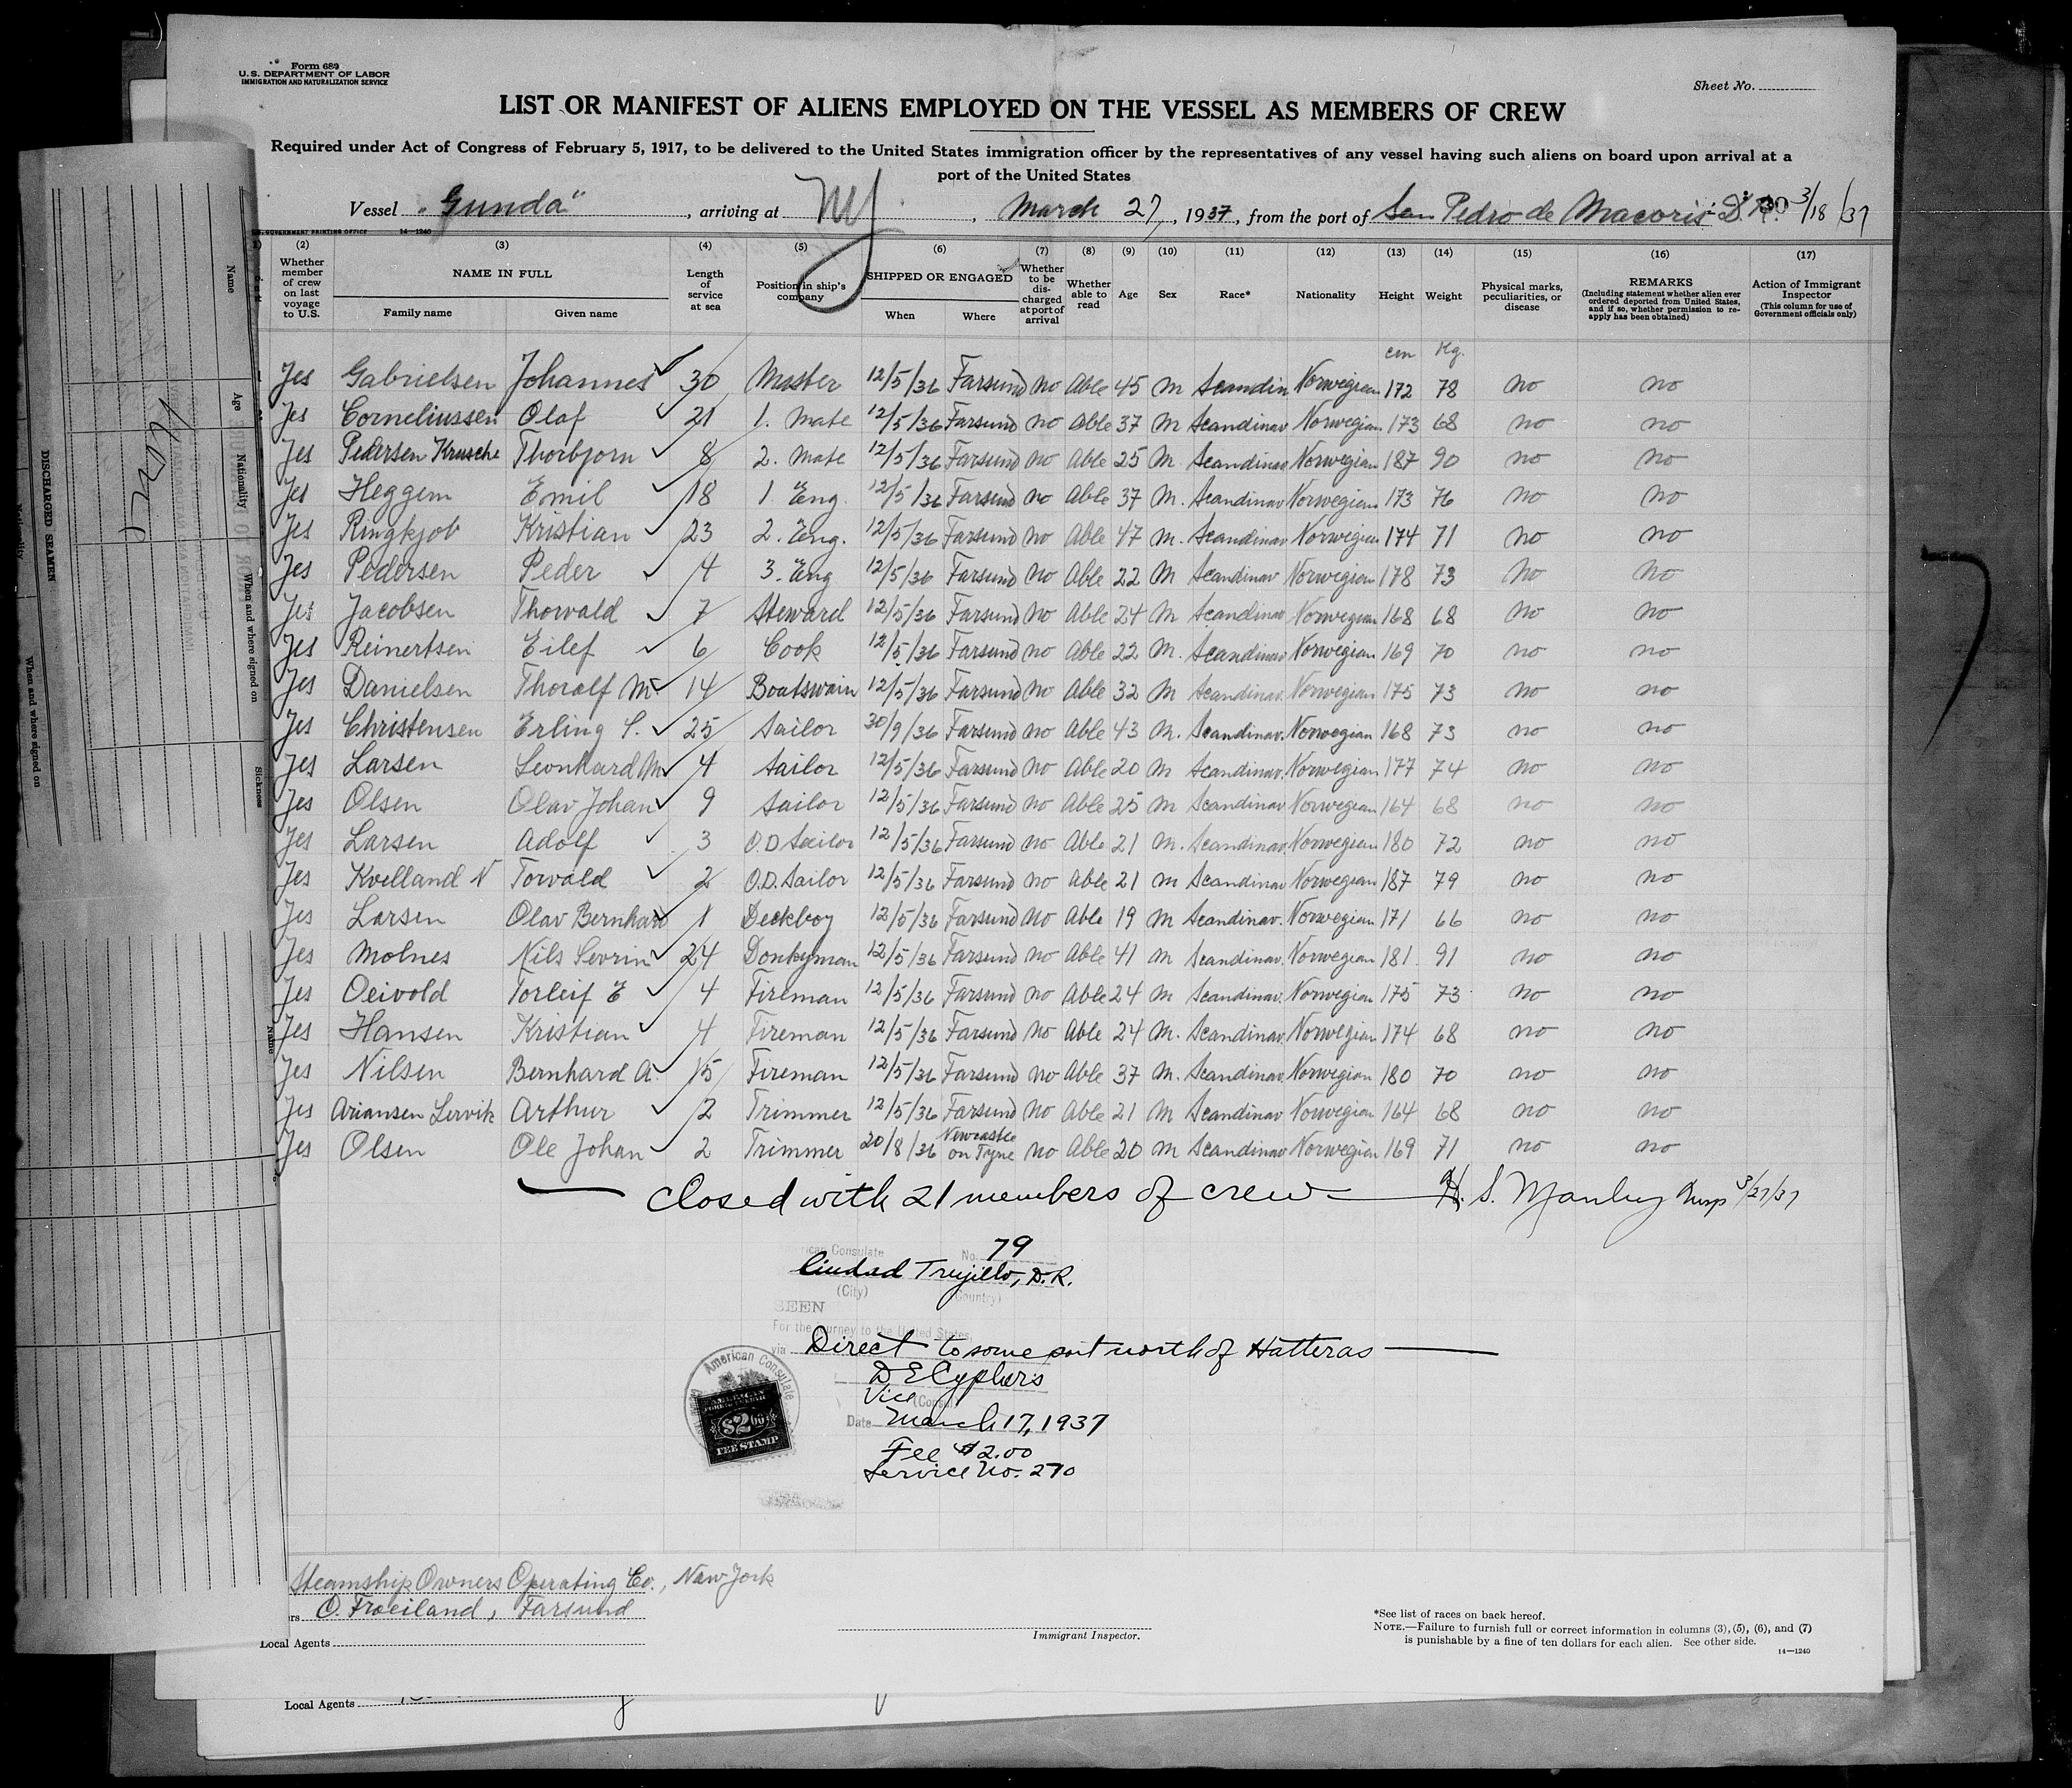 Form 689
U.S. DEPARTMENT OF LABOR
IMMIGRATION AND NATURALIZATION SERVICE
Sheet No.
LIST OR MANIFEST OF ALIENS EMPLOYED ON THE VESSEL AS MEMBERS OF CREW
Required under Act of Congress of February 5, 1917, to be delivered to the United States immigration officer by the representatives of any vessel having such aliens on board upon arrival at a
port of the United States
Vessel "Gunda", arriving at NY, March 27, 1937, from the port of San Pedro de Macoris D.R. 3/18/37
U.S. GOVERNMENT PRINTING OFFICE 14—1240
(2) (3) (4) (5) (6) (7) (8) (9) (10) (11) (12) (13) (14) (15) (16) (17)
Whether member of crew on last voyage to U.S. NAME IN FULL Family name Given name Length of service at sea Position in ship's company SHIPPED OR ENGAGED When Where Whether to be discharged at port of arrival Whether able to read Age Sex Race* Nationality Height Weight Physical marks, peculiarities, or disease REMARKS (Including statement whether alien ever ordered deported from United States, and if so, whether permission to reapply has been obtained) Action of Immigrant Inspector (This column for use of Government officials only)
cm Kg.
Yes Gabrielsen Johannes 30 Master 12/5/36 Farsund no Able 45 M Scandin Norwegian 172 78 no no
Yes Corneliussen Olaf 21 1. Mate 12/5/36 Farsund no Able 37 M Scandinav Norwegian 173 68 no no
Yes Pedersen Krusche Thorbjorn 8 2. Mate 12/5/36 Farsund no Able 25 M. Scandinav Norwegian 187 90 no no
Yes Heggem Emil 18 1 Eng. 12/5/36 Farsund no Able 37 M. Scandinav Norwegian 173 76 no no
Yes Ringkjob Kristian 23 2. Eng. 12/5/36 Farsund no Able 47 M. Scandinav Norwegian 174 71 no no
Yes Pedersen Peder 4 3. Eng 12/5/36 Farsund no Able 22 M Scandinav Norwegian 178 73 no no
Yes Jacobsen Thorvald 7 Steward 12/5/36 Farsund no Able 24 M Scandinav Norwegian 168 68 no no
Yes Reinertsen Eilef 6 Cook 12/5/36 Farsund no Able 22 M. Scandinav Norwegian 169 70 no no
Yes Danielsen Thoralf M 14 Boatswain 12/5/36 Farsund no Able 32 M Scandinav. Norwegian 175 73 no no
Yes Christensen Erling S. 25 Sailor 30/9/36 Farsund no Able 43 M. Scandinav. Norwegian 168 73 no no
Yes Larsen Leonhard M 4 Sailor 12/5/36 Farsund no Able 20 M Scandinav. Norwegian 177 74 no no
Yes Olsen Olav Johan 9 Sailor 12/5/36 Farsund no Able 25 M Scandinav Norwegian 164 68 no no
Yes Larsen Adolf 3 O.D Sailor 12/5/36 Farsund no Able 21 M. Scandinav. Norwegian 180 72 no no
Yes Kvelland N Torvald 2 O.D. Sailor 12/5/36 Farsund no Able 21 M Scandinav Norwegian 187 79 no no
Yes Larsen Olav Bernhard 1 Deckboy 12/5/36 Farsund no Able 19 M Scandinav. Norwegian 171 66 no no
Yes Molnes Nils Sevrin 24 Donkyman 12/5/36 Farsund no Able 41 M Scandinav. Norwegian 181 91 no no
Yes Oeivold Torleif E 4 Fireman 12/5/36 Farsund no Able 24 M Scandinav. Norwegian 175 73 no no
Yes Hansen Kristian 4 Fireman 12/5/36 Farsund no Able 24 M. Scandinav. Norwegian 174 68 no no
Yes Nilsen Bernhard A. 15 Fireman 12/5/36 Farsund no Able 37 M. Scandinav. Norwegian 180 70 no no
Yes Ariansen Lervik Arthur 2 Trimmer 12/5/36 Farsund no Able 21 M Scandinav Norwegian 164 68 no no
Yes Olsen Ole Johan 2 Trimmer 20/8/36 Newcastle on Tyne no Able 20 M Scandinav Norwegian 169 71 no no
Closed with 21 members of crew — H. S. Manley Insp 3/27/37
American Consulate No. 79
Ciudad Trujillo, D.R.
(City) (Country)
SEEN
For the journey to the United States,
via Direct to some port north of Hatteras
D E Cyphers
Vice (Consul)
Date March 17, 1937
Fee $2.00
Service No. 270
American Consulate
AMERICAN
$2.00
FEE STAMP
Steamship Owners Operating Co., New York
O. Froeiland, Farsund
Local Agents
Immigrant Inspector.
*See list of races on back hereof.
NOTE.—Failure to furnish full or correct information in columns (3), (5), (6), and (7)
is punishable by a fine of ten dollars for each alien. See other side.
14—1240
Local Agents
Name
Age
Nationality
When and where signed on
Sickness
Name
DISCHARGED SEAMEN
Nationality
When and where signed on
None